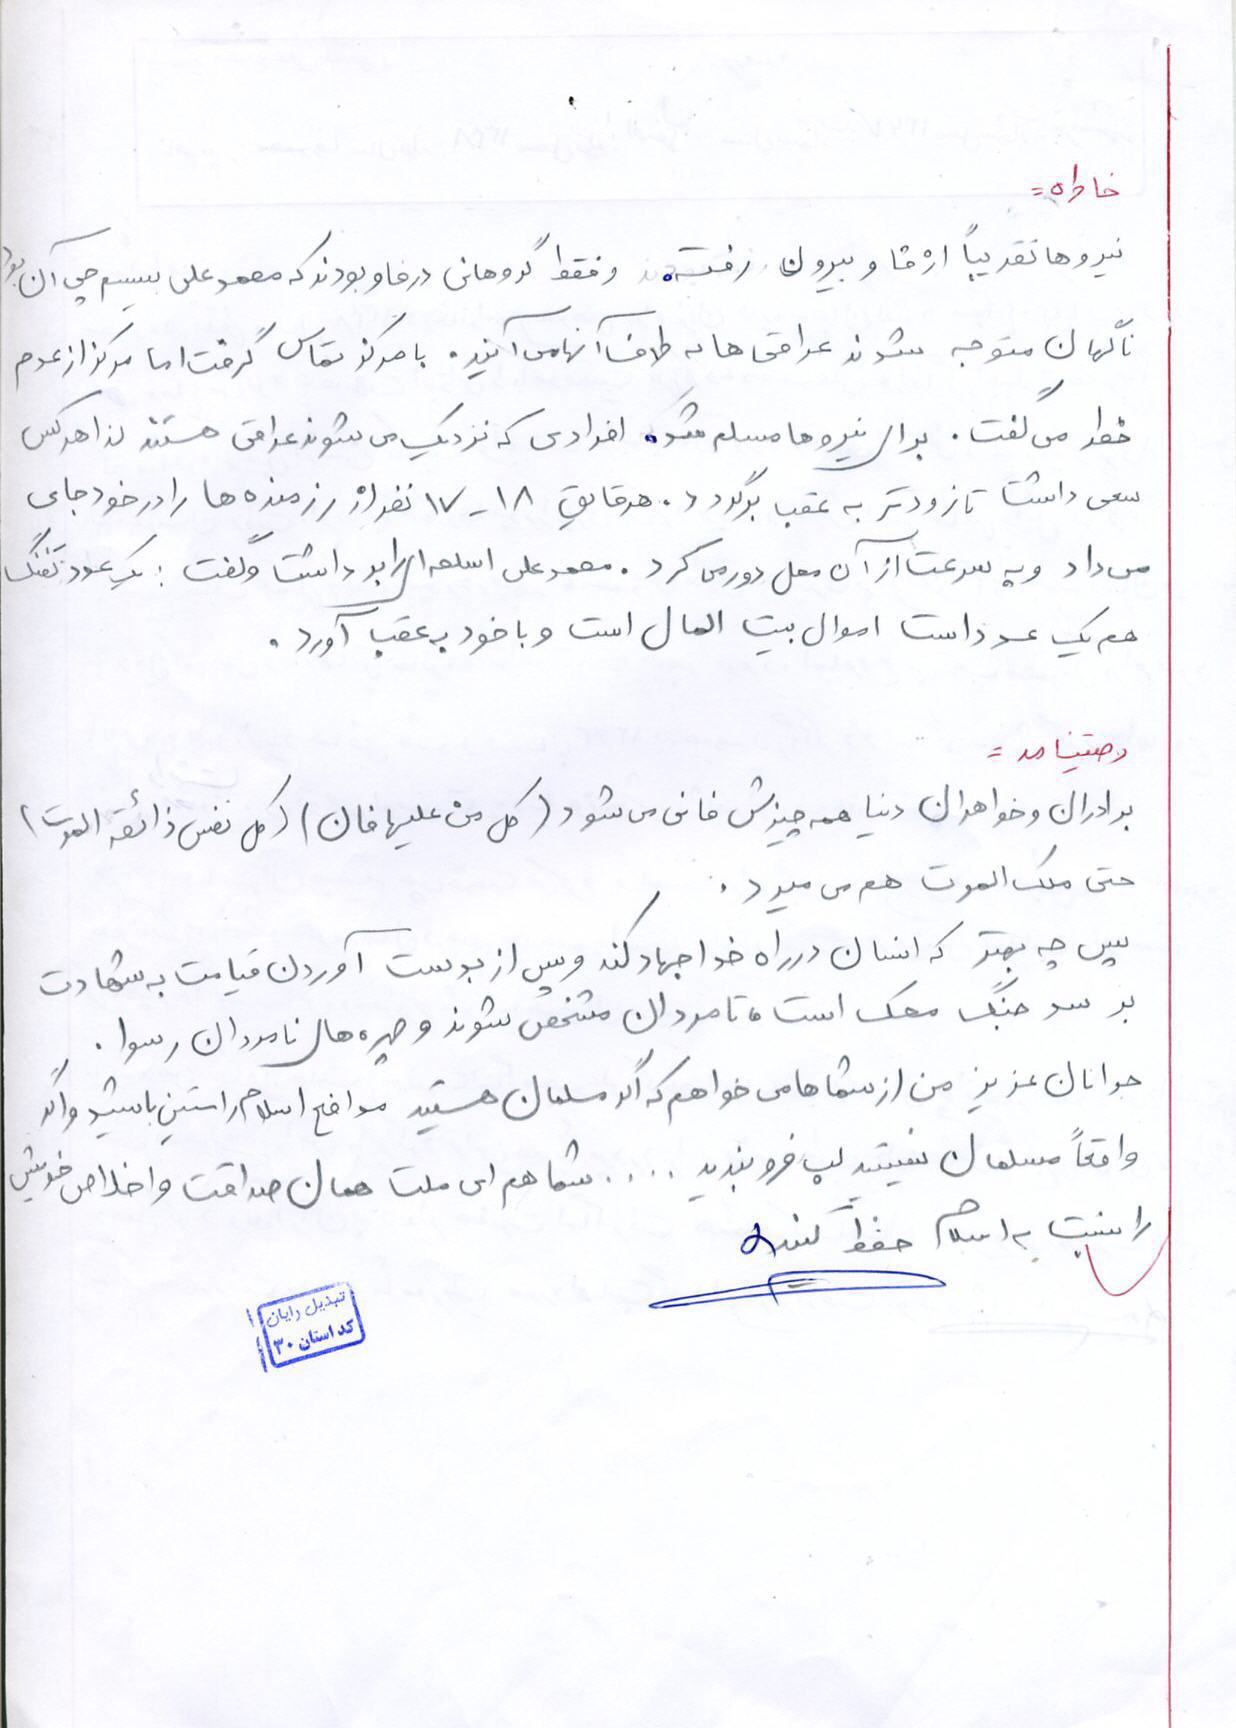 خاطره =
نیروها تقریباً از فاو بیرون رفته و فقط گروهانی در فاو بودند که محمد علی بیسیم چی آن بود
ناگهان متوجه شدند عراقی ها به طرف آنها می آیند. با مرکز تماس گرفت اما مرکز از عدم
خطر می گفت. برای نیروها مسلم شد افرادی که نزدیک می شوند عراقی هستند لذا هرکس
سعی داشت تا زودتر به عقب برگردد. هر قایق ۱۸ - ۱۷ نفر از رزمنده ها را در خود جای
می داد و به سرعت از آن محل دور می کرد. محمد علی اسلحه ای را برداشت و گفت: یک عدد تفنگ
هم یک عدد است اموال بیت المال است و با خود به عقب آورد.
وصیتنامه =
برادران و خواهران دنیا همه چیزش فانی می شود (کل من علیها فان) (کل نفس ذائقة الموت)
حتی ملک الموت هم می میرد.
پس چه بهتر که انسان در راه خدا جهاد کند و پس از بدست آوردن قیامت به شهادت
بر سد جنگ محک است، تا مردان مشخص شوند و چهره های نامردان رسوا.
جوانان عزیز من از شماها می خواهم که اگر مسلمان هستید مدافع اسلام راستین باشید و اگر
واقعاً مسلمان نیستید لب فرو بندید .... شما هم ای ملت همان صداقت و اخلاص خویش
را نسبت به اسلام حفظ کنید
تبدیل رایان
کد استان ۳۰